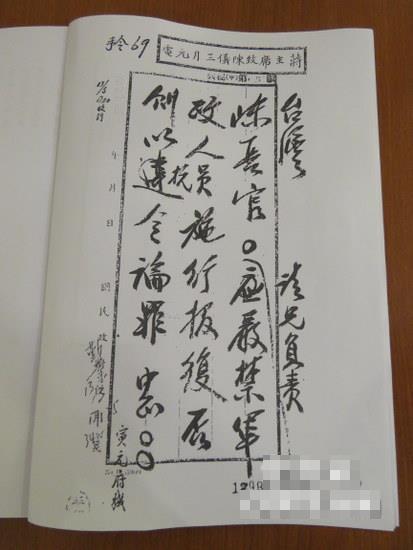 手令 69
蔣主席致陳儀三月元電
台灣
請兄負責
陳長官。應嚴禁軍
政人員施行報復否
則以違抗令論罪 中正。
寅元府機
年 月 日 國民政